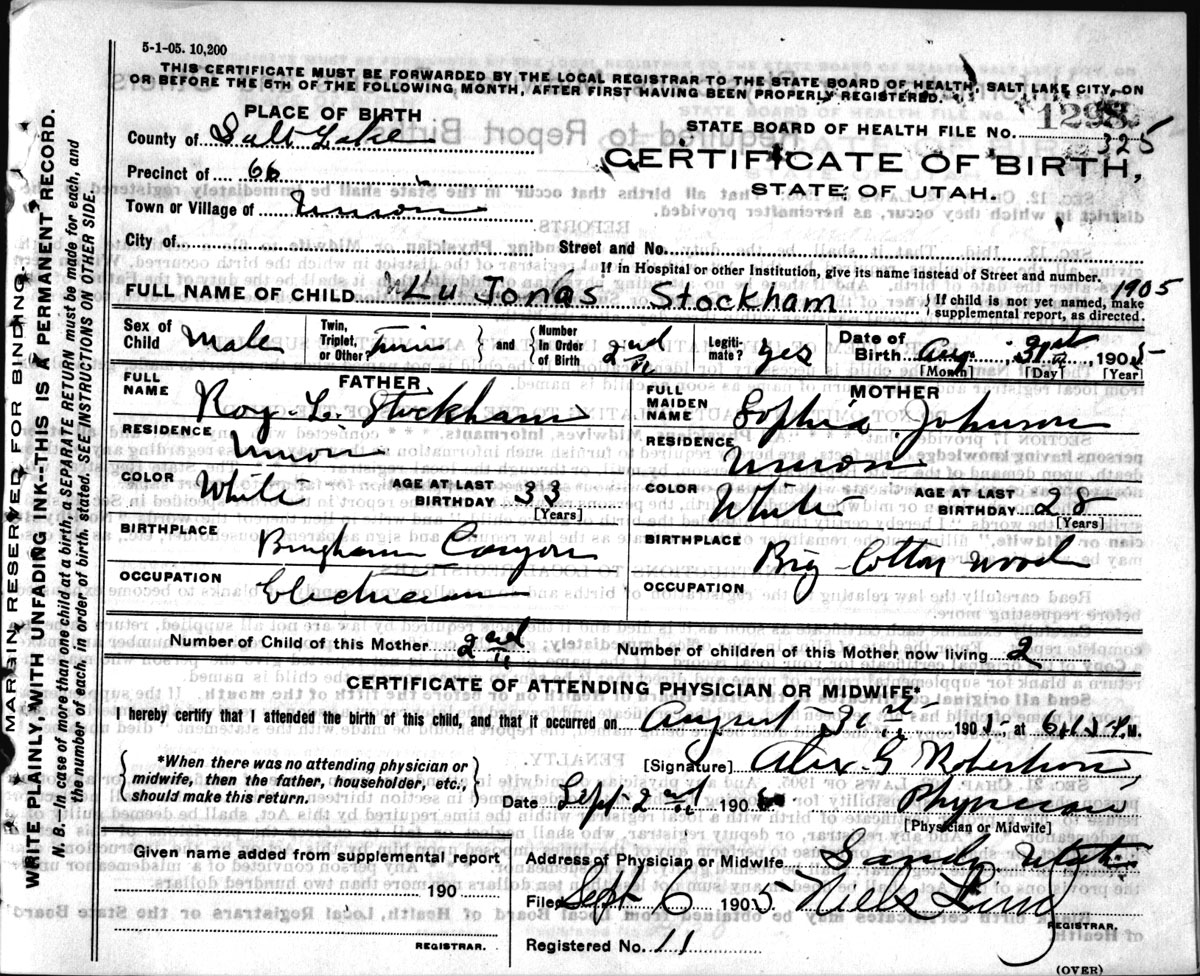 5-1-05. 10,200
THIS CERTIFICATE MUST BE FORWARDED BY THE LOCAL REGISTRAR TO THE STATE BOARD OF HEALTH, SALT LAKE CITY, ON
OR BEFORE THE 5TH OF THE FOLLOWING MONTH, AFTER FIRST HAVING BEEN PROPERLY REGISTERED.
PLACE OF BIRTH
County of Salt Lake
Precinct of 66
Town or Village of Union
City of
STATE BOARD OF HEALTH FILE NO. 1298
325
CERTIFICATE OF BIRTH,
STATE OF UTAH.
Street and No.
If in Hospital or other Institution, give its name instead of Street and number.
FULL NAME OF CHILD. Lu Jonas Stockham
1905
If child is not yet named, make
supplemental report, as directed.
Sex of Child Male
Twin, Triplet, or Other
and Number In Order of Birth 2nd
Legiti-mate? Yes
Date of Birth Aug. 31st 1905
[Month] [Day] [Year]
FATHER
FULL NAME Roy L. Stockham
RESIDENCE Union
COLOR White AGE AT LAST BIRTHDAY 33
[Years]
BIRTHPLACE Bingham Canyon
OCCUPATION Electrician
MOTHER
FULL MAIDEN NAME Sophia Johnson
RESIDENCE Union
COLOR White AGE AT LAST BIRTHDAY 28
[Years]
BIRTHPLACE Big Cotton wood
OCCUPATION
Number of Child of this Mother 2nd Number of children of this Mother now living 2
CERTIFICATE OF ATTENDING PHYSICIAN OR MIDWIFE*
I hereby certify that I attended the birth of this child, and that it occurred on August 31st 1905, at 6:15 M.
*When there was no attending physician or
midwife, then the father, householder, etc.,
should make this return.
[Signature] Alex. G Robertson
Date Sept 2nd 190 Physician
[Physician or Midwife]
Given name added from supplemental report
190
REGISTRAR.
Address of Physician or Midwife Sandy Utah
Filed Sept 6 1905 Niels Lind
REGISTRAR.
Registered No. 11
(OVER)
MARGIN RESERVED FOR BINDING.
WRITE PLAINLY, WITH UNFADING INK—THIS IS A PERMANENT RECORD.
N. B.—In case of more than one child at a birth, a SEPARATE RETURN must be made for each, and
the number of each, in order of birth, stated. SEE INSTRUCTIONS ON OTHER SIDE.